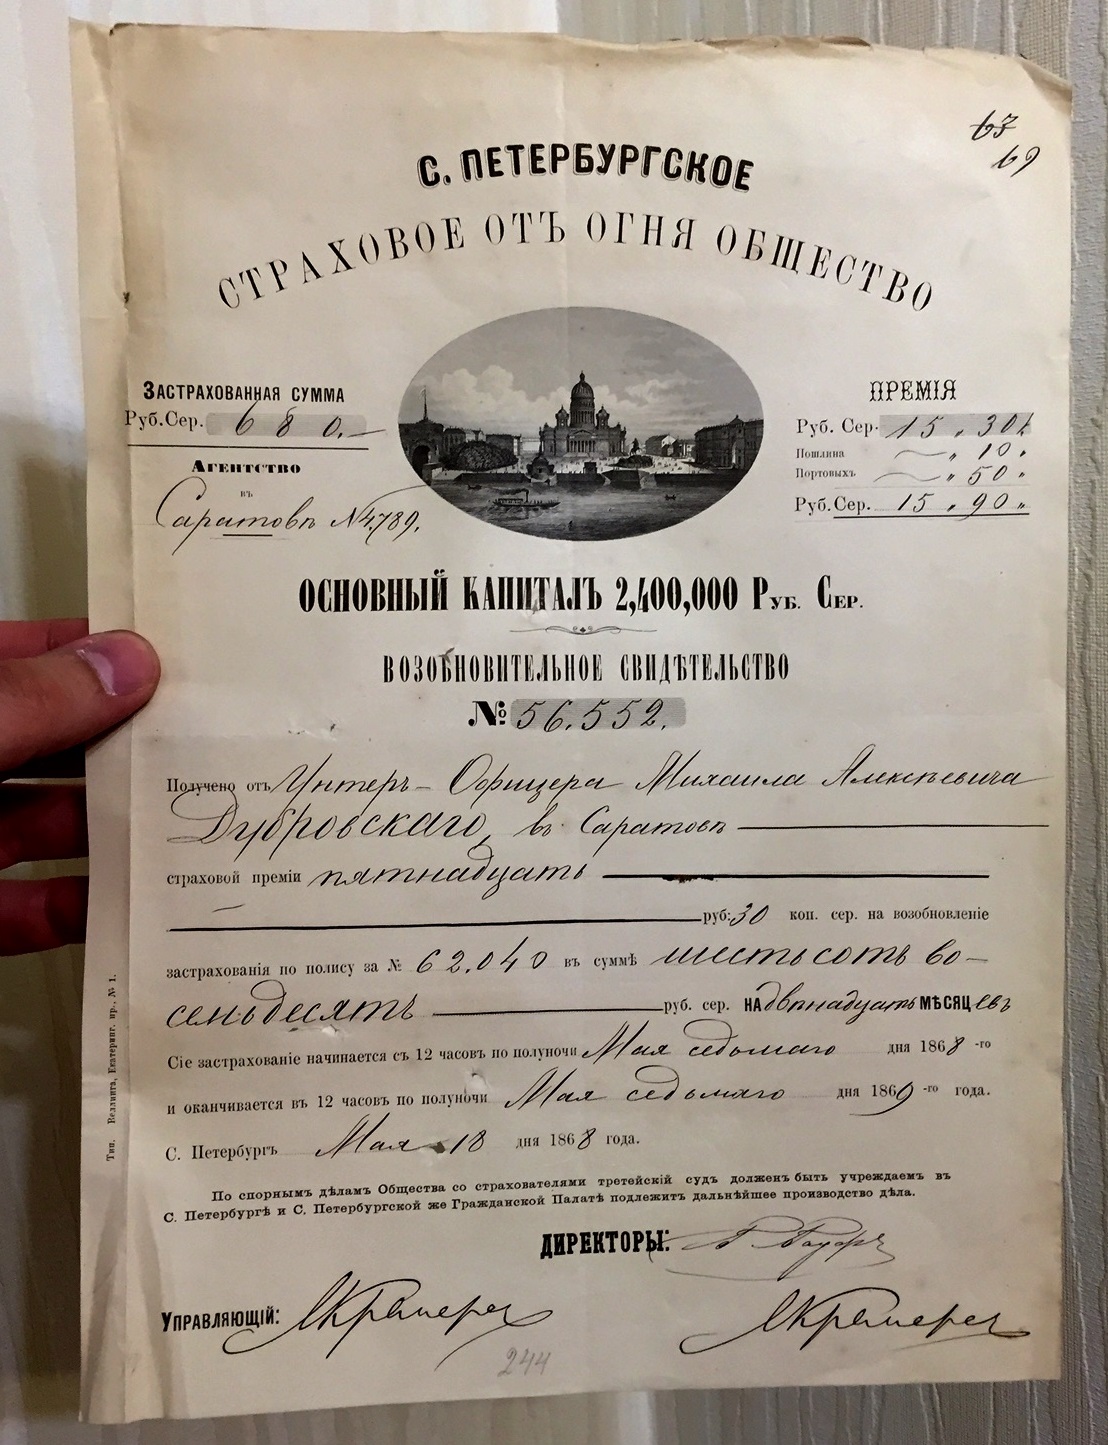 63
69
С. ПЕТЕРБУРГСКОЕ
СТРАХОВОЕ ОТЪ ОГНЯ ОБЩЕСТВО
ЗАСТРАХОВАННАЯ СУММА
Руб.Сер. 680.
АГЕНТСТВО
въ
Саратовѣ №4789.
ПРЕМІЯ
Руб. Сер. 15 „ 30 к
Пошлина „ 10 „
Портовыхъ „ 50 „
Руб. Сер. 15 „ 90 „
ОСНОВНЫЙ КАПИТАЛЪ 2,400,000 РУБ. СЕР.
ВОЗОБНОВИТЕЛЬНОЕ СВИДѢТЕЛЬСТВО
№ 56.552.
Получено отъ Унтеръ-Офицера Михаила Алексѣевича
Дубровскаго, въ Саратовѣ
страховой преміи пятнадцать
руб: 30 коп. сер. на возобновленіе
застрахованія по полису за № 62.040 въ суммѣ шестьсотъ во-
семьдесятъ руб. сер. НА двѣнадцать МѢСЯЦевъ
Сіе застрахованіе начинается съ 12 часовъ по полуночи Мая седьмаго дня 1868-го
и оканчивается въ 12 часовъ по полуночи Мая седьмаго дня 1869-го года.
С. Петербургъ Мая 18 дня 1868 года.
По спорнымъ дѣламъ Общества со страхователями третейскій судъ долженъ быть учреждаемъ въ
С. Петербургѣ и С. Петербургской же Гражданской Палатѣ подлежитъ дальнѣйшее производство дѣла.
ДИРЕКТОРЫ:
УПРАВЛЯЮЩІЙ:
244
Тип. Веллинга, Екатеринг. пр., № 1.